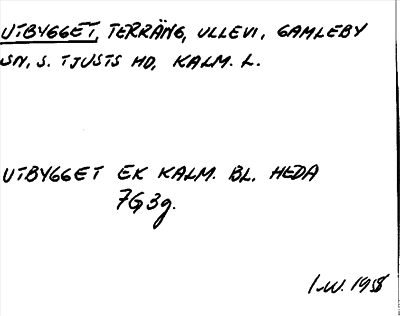 UTBYGGET, TERRÄNG, ULLEVI, GAMLEBY
SN, S. TJUSTS HD, KALM. L.
UTBYGGET EK KALM. BL. HEDA
7G3g.
I.W. 1958